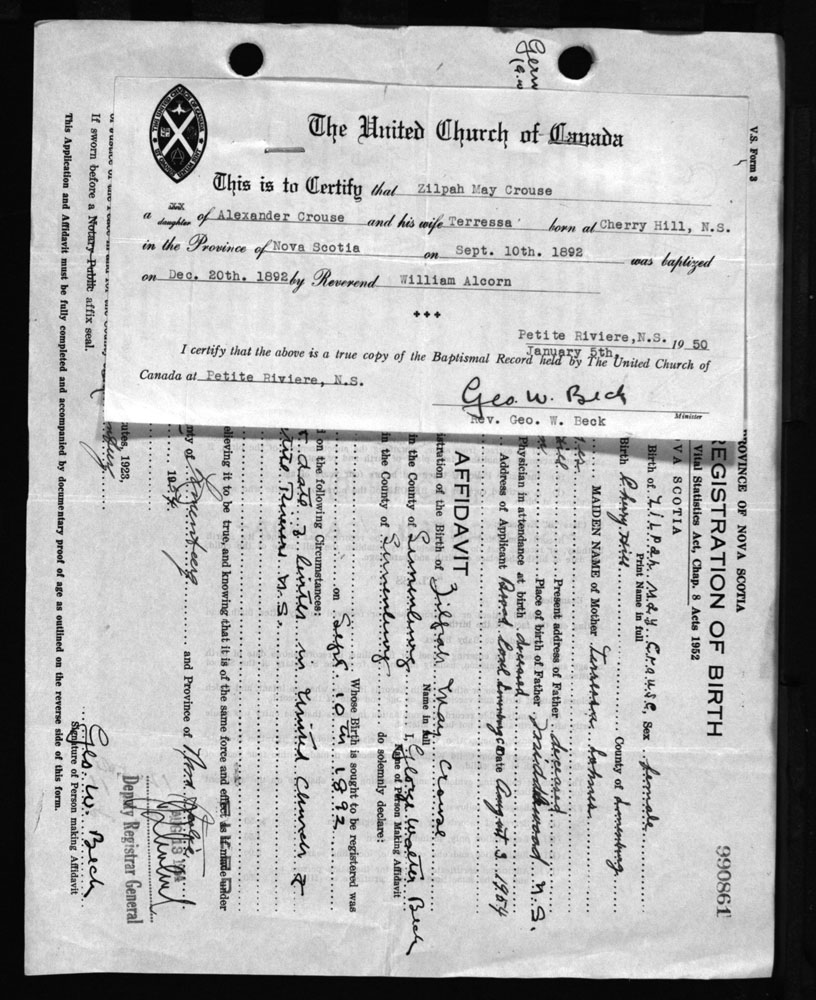 Germ
(G.W
V.S. Form 3
The United Church of Canada
This is to Certify that Zilpah May Crouse
a daughter of Alexander Crouse and his wife Terressa born at Cherry Hill, N.S.
in the Province of Nova Scotia on Sept. 10th. 1892 was baptized
on Dec. 20th. 1892 by Reverend William Alcorn
Petite Riviere, N.S. 1950
January 5th,
I certify that the above is a true copy of the Baptismal Record held by The United Church of
Canada at Petite Riviere, N.S.
Geo. W. Beck
Rev. Geo. W. Beck Minister
990861
ROVINCE OF NOVA SCOTIA
REGISTRATION OF BIRTH
Vital Statistics Act, Chap. 8 Acts 1952
VA SCOTIA
Birth of Zilpah May Crouse, Sex female
Print Name in full
Birth Cherry Hill County of Lunenburg
MAIDEN NAME of Mother Terressa
Present address of Father deceased
Place of birth of Father Middlewood N.S.
Physician in attendance at birth deceased
Address of Applicant Broad Cove Lunenburg Co Date August 3 1954
AFFIDAVIT
istration of the Birth of Zilpah May Crouse
Name in full
in the County of Lunenburg I, George Walter Beck
Name of Person Making Affidavit
in the County of Lunenburg do solemnly declare:
Whose Birth is sought to be registered was
on Sept. 10th 1892
d on the following Circumstances:
date & entries in United Church at
Petite Riviere N.S.
elieving it to be true, and knowing that it is of the same force and effect as if made under
nty of Lunenburg and Province of Nova Scotia
1954.
Deputy Registrar General
tutes, 1923,
Geo. W. Beck
Signature of Person making Affidavit
If sworn before a Notary Public affix seal.
This Application and Affidavit must be fully completed and accompanied by documentary proof of age as outlined on the reverse side of this form.